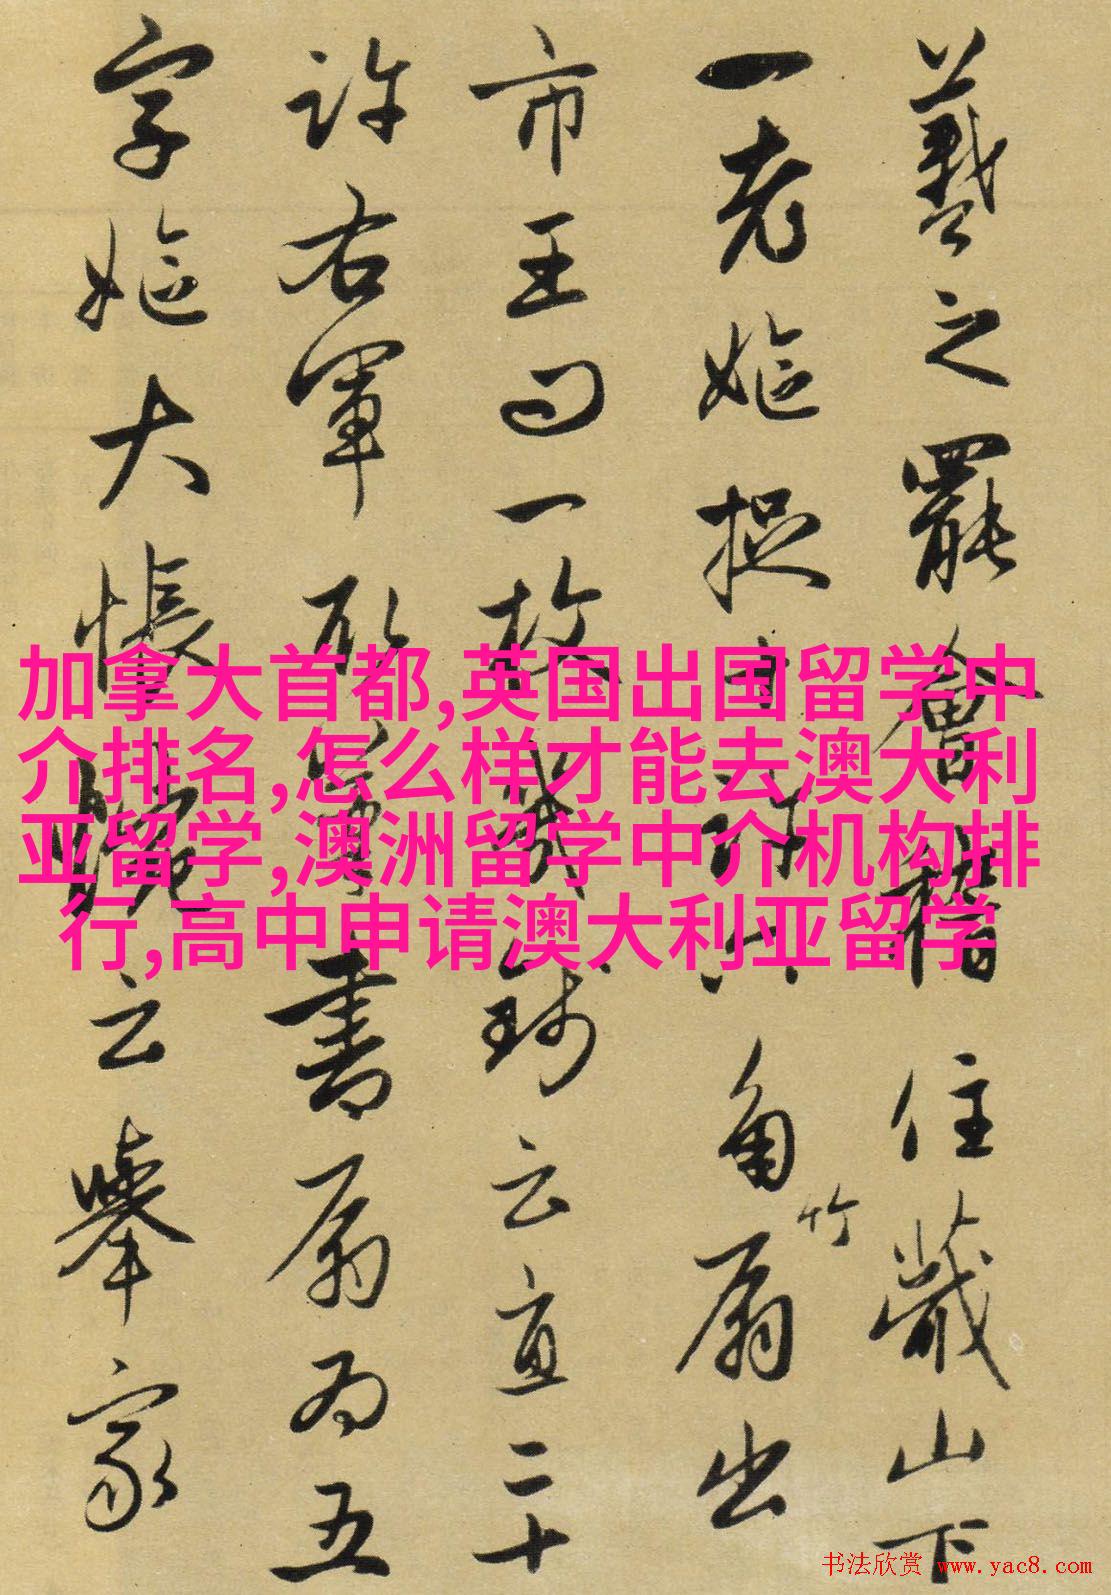 羲之罷會稽住蕺山下
一老嫗捉十許六角竹扇出
市王問一枚幾錢云直二十
許右軍取筆書扇為五
字嫗大悵惋云舉家
加拿大首都,英国出国留学中
介排名,怎么样才能去澳大利
亚留学,澳洲留学中介机构排
行,高中申请澳大利亚留学
书法欣赏 www.yac8.com